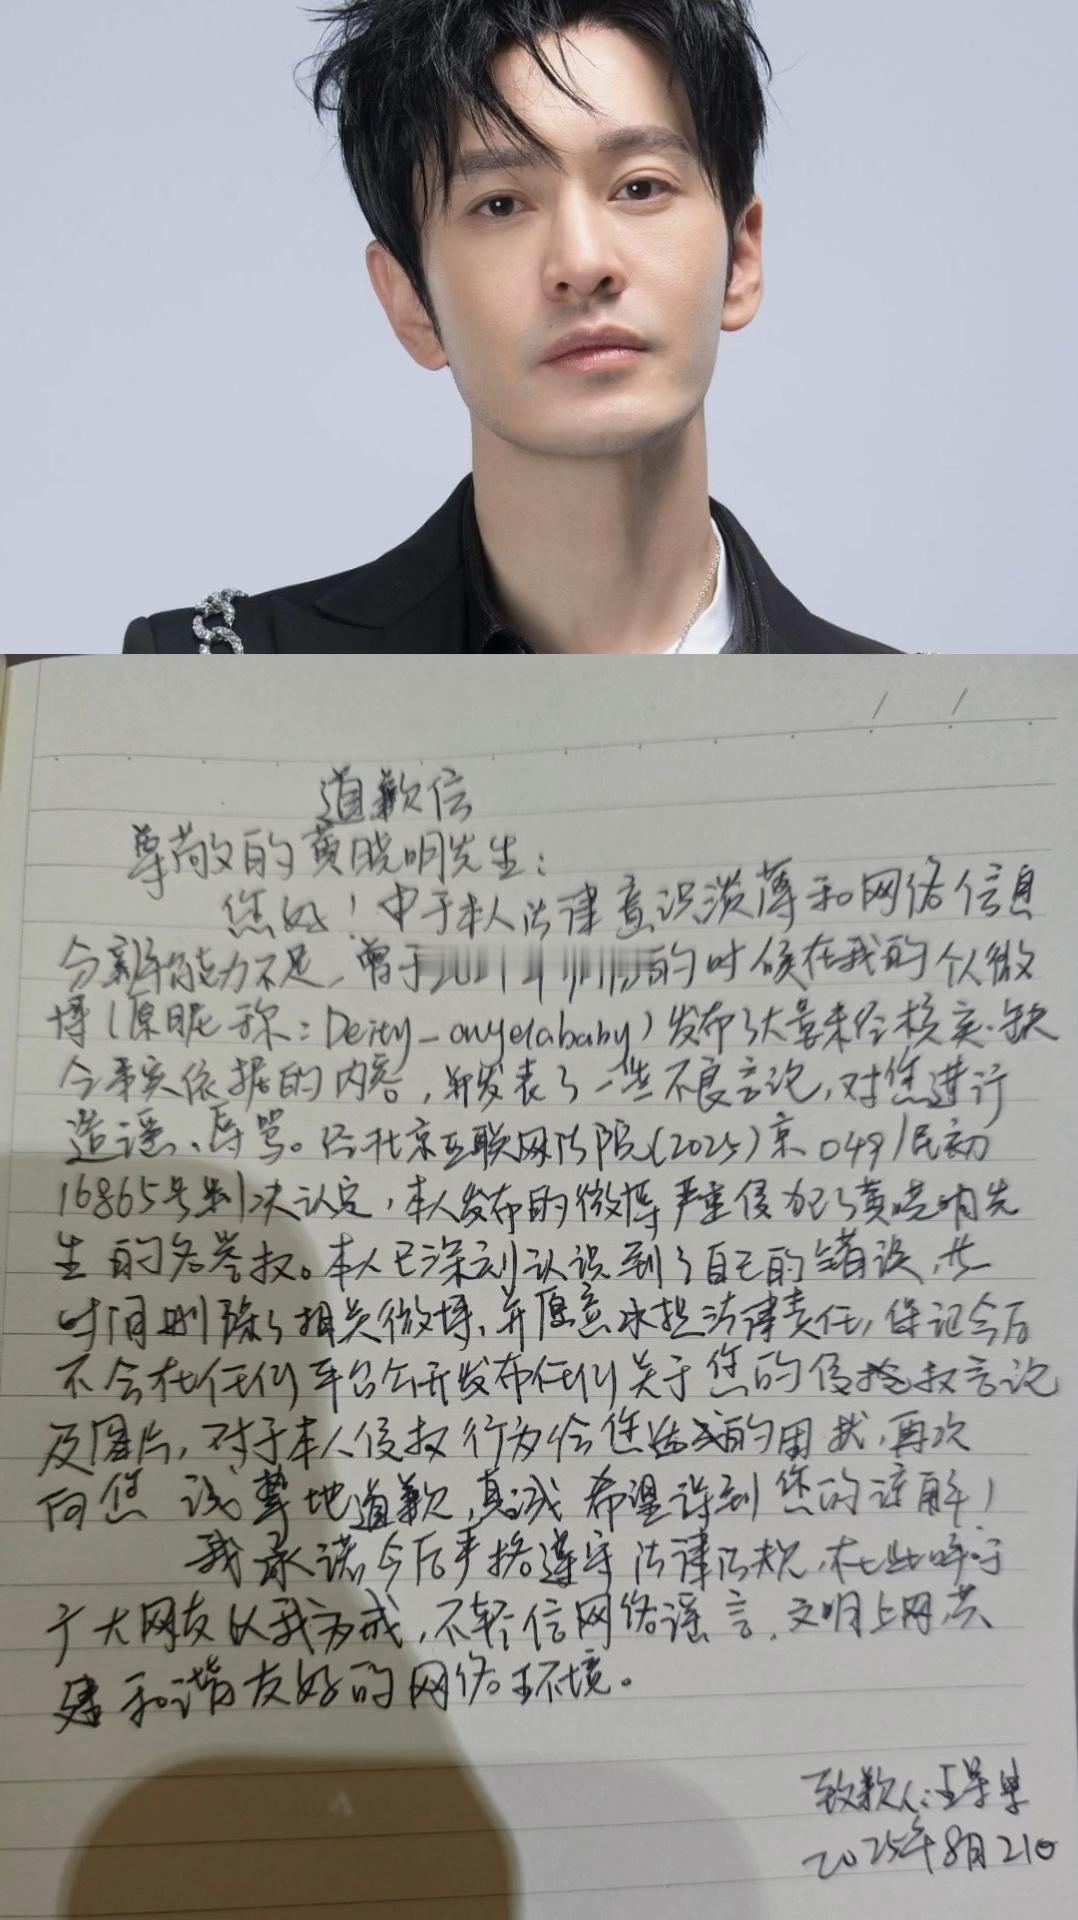 道歉信
尊敬的黄晓明先生：
您好！由于本人法律意识淡薄和网络信息
分辨能力不足，曾于的时候在我的个人微
博（原昵称：Deity_angelababy）发布了大量未经核实、缺
令事实依据的内容，并发表了一些不良言论，对您进行
造谣、辱骂。经北京互联网法院（2025）京0491民初
16865号判决认定，本人发布的微博严重侵犯了黄晓明先
生的名誉权。本人已深刻认识到了自己的错误，
时间删除了相关微博，并愿意承担法律责任，保证今后
不会在任何平台公开发布任何关于您的侵权言论
及图片，对于本人侵权行为给您造成的困扰，再次
向您诚挚地道歉，真诚希望得到您的谅解！
我承诺今后严格遵守法律法规，在此呼吁
广大网友以我为戒，不轻信网络谣言，文明上网，共
建和谐友好的网络环境。
致歉人：
2025年8月21日